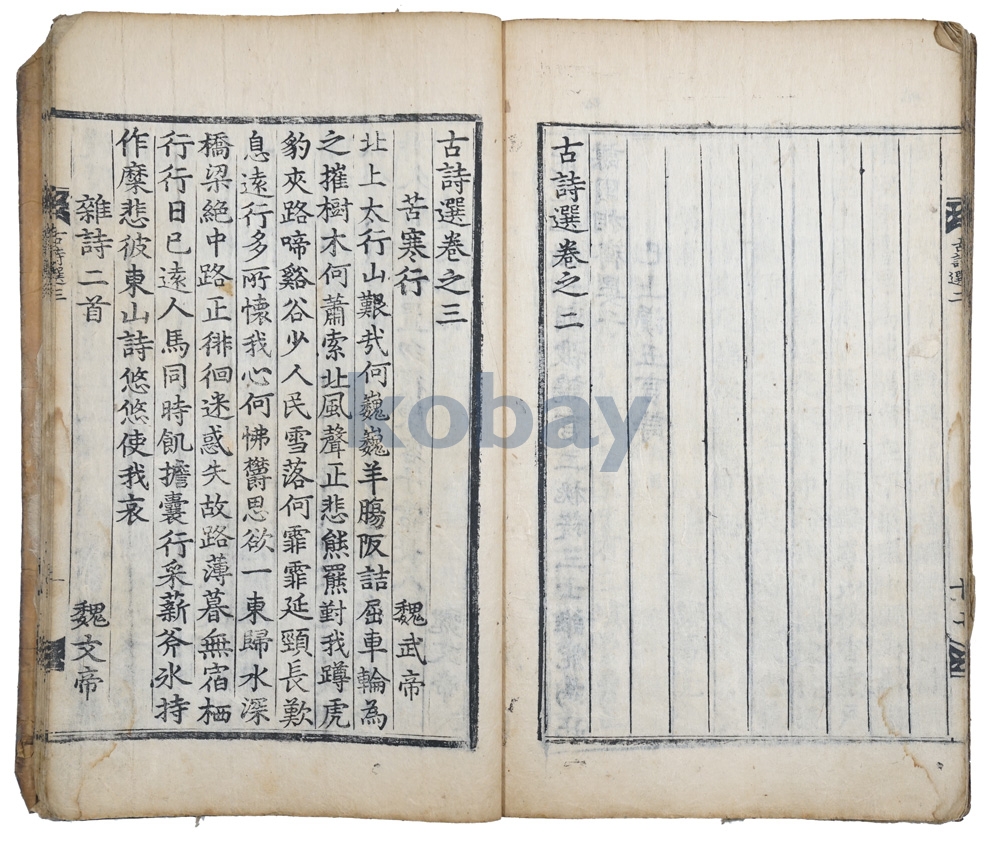 古詩選二
古詩選卷之二
古詩選卷之三
苦寒行 魏武帝
北上太行山艱㢤何巍巍羊膓阪詰屈車輪為
之摧樹木何蕭索北風聲正悲熊羆對我蹲虎
豹夾路啼谿谷少人民雪落何霏霏延頸長歎
息遠行多所懷我心何怫欝思欲一東歸水深
橋梁絶中路正徘徊迷惑失故路薄暮無宿栖
行行日已遠人馬同時飢擔囊行采薪斧氷持
作糜悲彼東山詩悠悠使我哀
雜詩二首 魏文帝
古詩選三
kobay